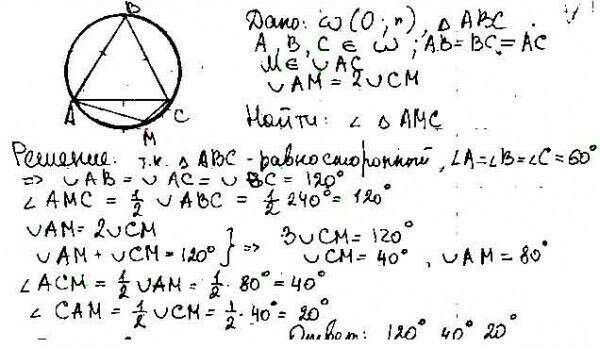 B
A
C
M
Дано: ω (O; r), △ ABC
A, B, C ∈ ω; AB = BC = AC
M ∈ ∪ AC
∪ AM = 2∪ CM
Найти: ∠ △ AMC
Решение: т.к. △ ABC - равносторонний, ∠A=∠B=∠C=60°
=> ∪ AB = ∪ AC = ∪ BC = 120°
∠ AMC = 1/2 ∪ ABC = 1/2 240° = 120°
∪AM = 2∪CM
∪ AM + ∪ CM = 120° } => 3∪CM = 120°
∪ CM = 40°, ∪ AM = 80°
∠ ACM = 1/2 ∪AM = 1/2 · 80° = 40°
∠ CAM = 1/2 ∪ CM = 1/2 · 40° = 20°
Ответ: 120° 40° 20°